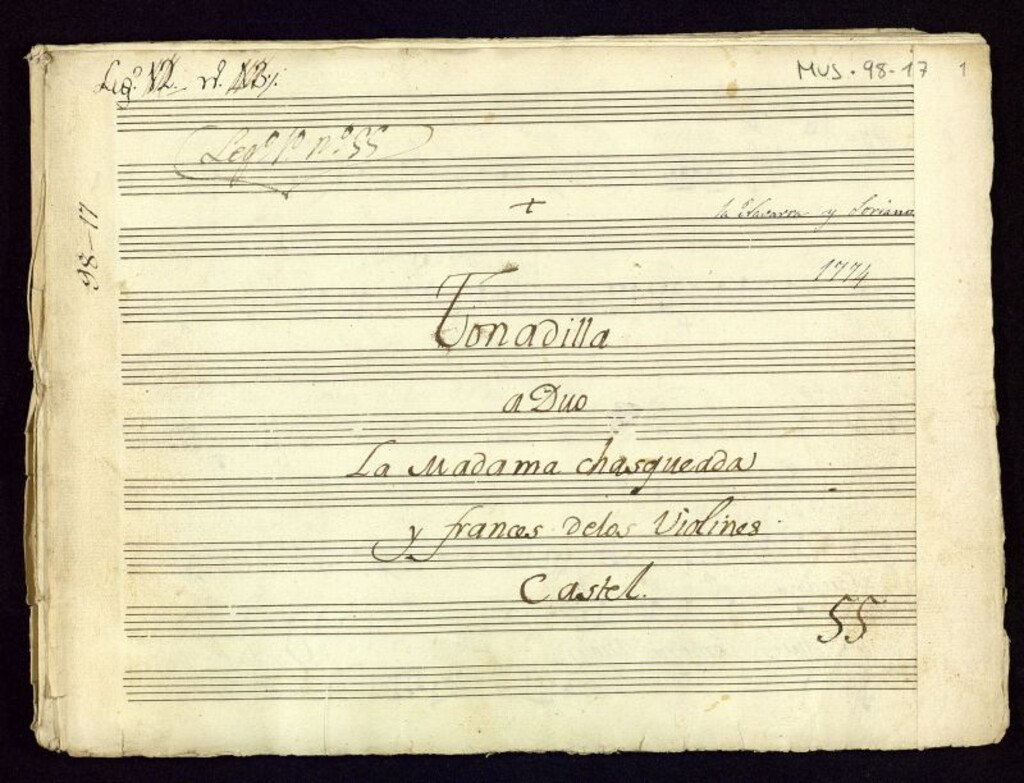 Leg.º 12. nº. 13,,
MUS. 98-17
1
Legº 1º nº 55
98-17
+
la Navarra y Soriano
1774
Tonadilla
a Duo
La Madama chasqueada
y frances delos Violines.
Castel.
55